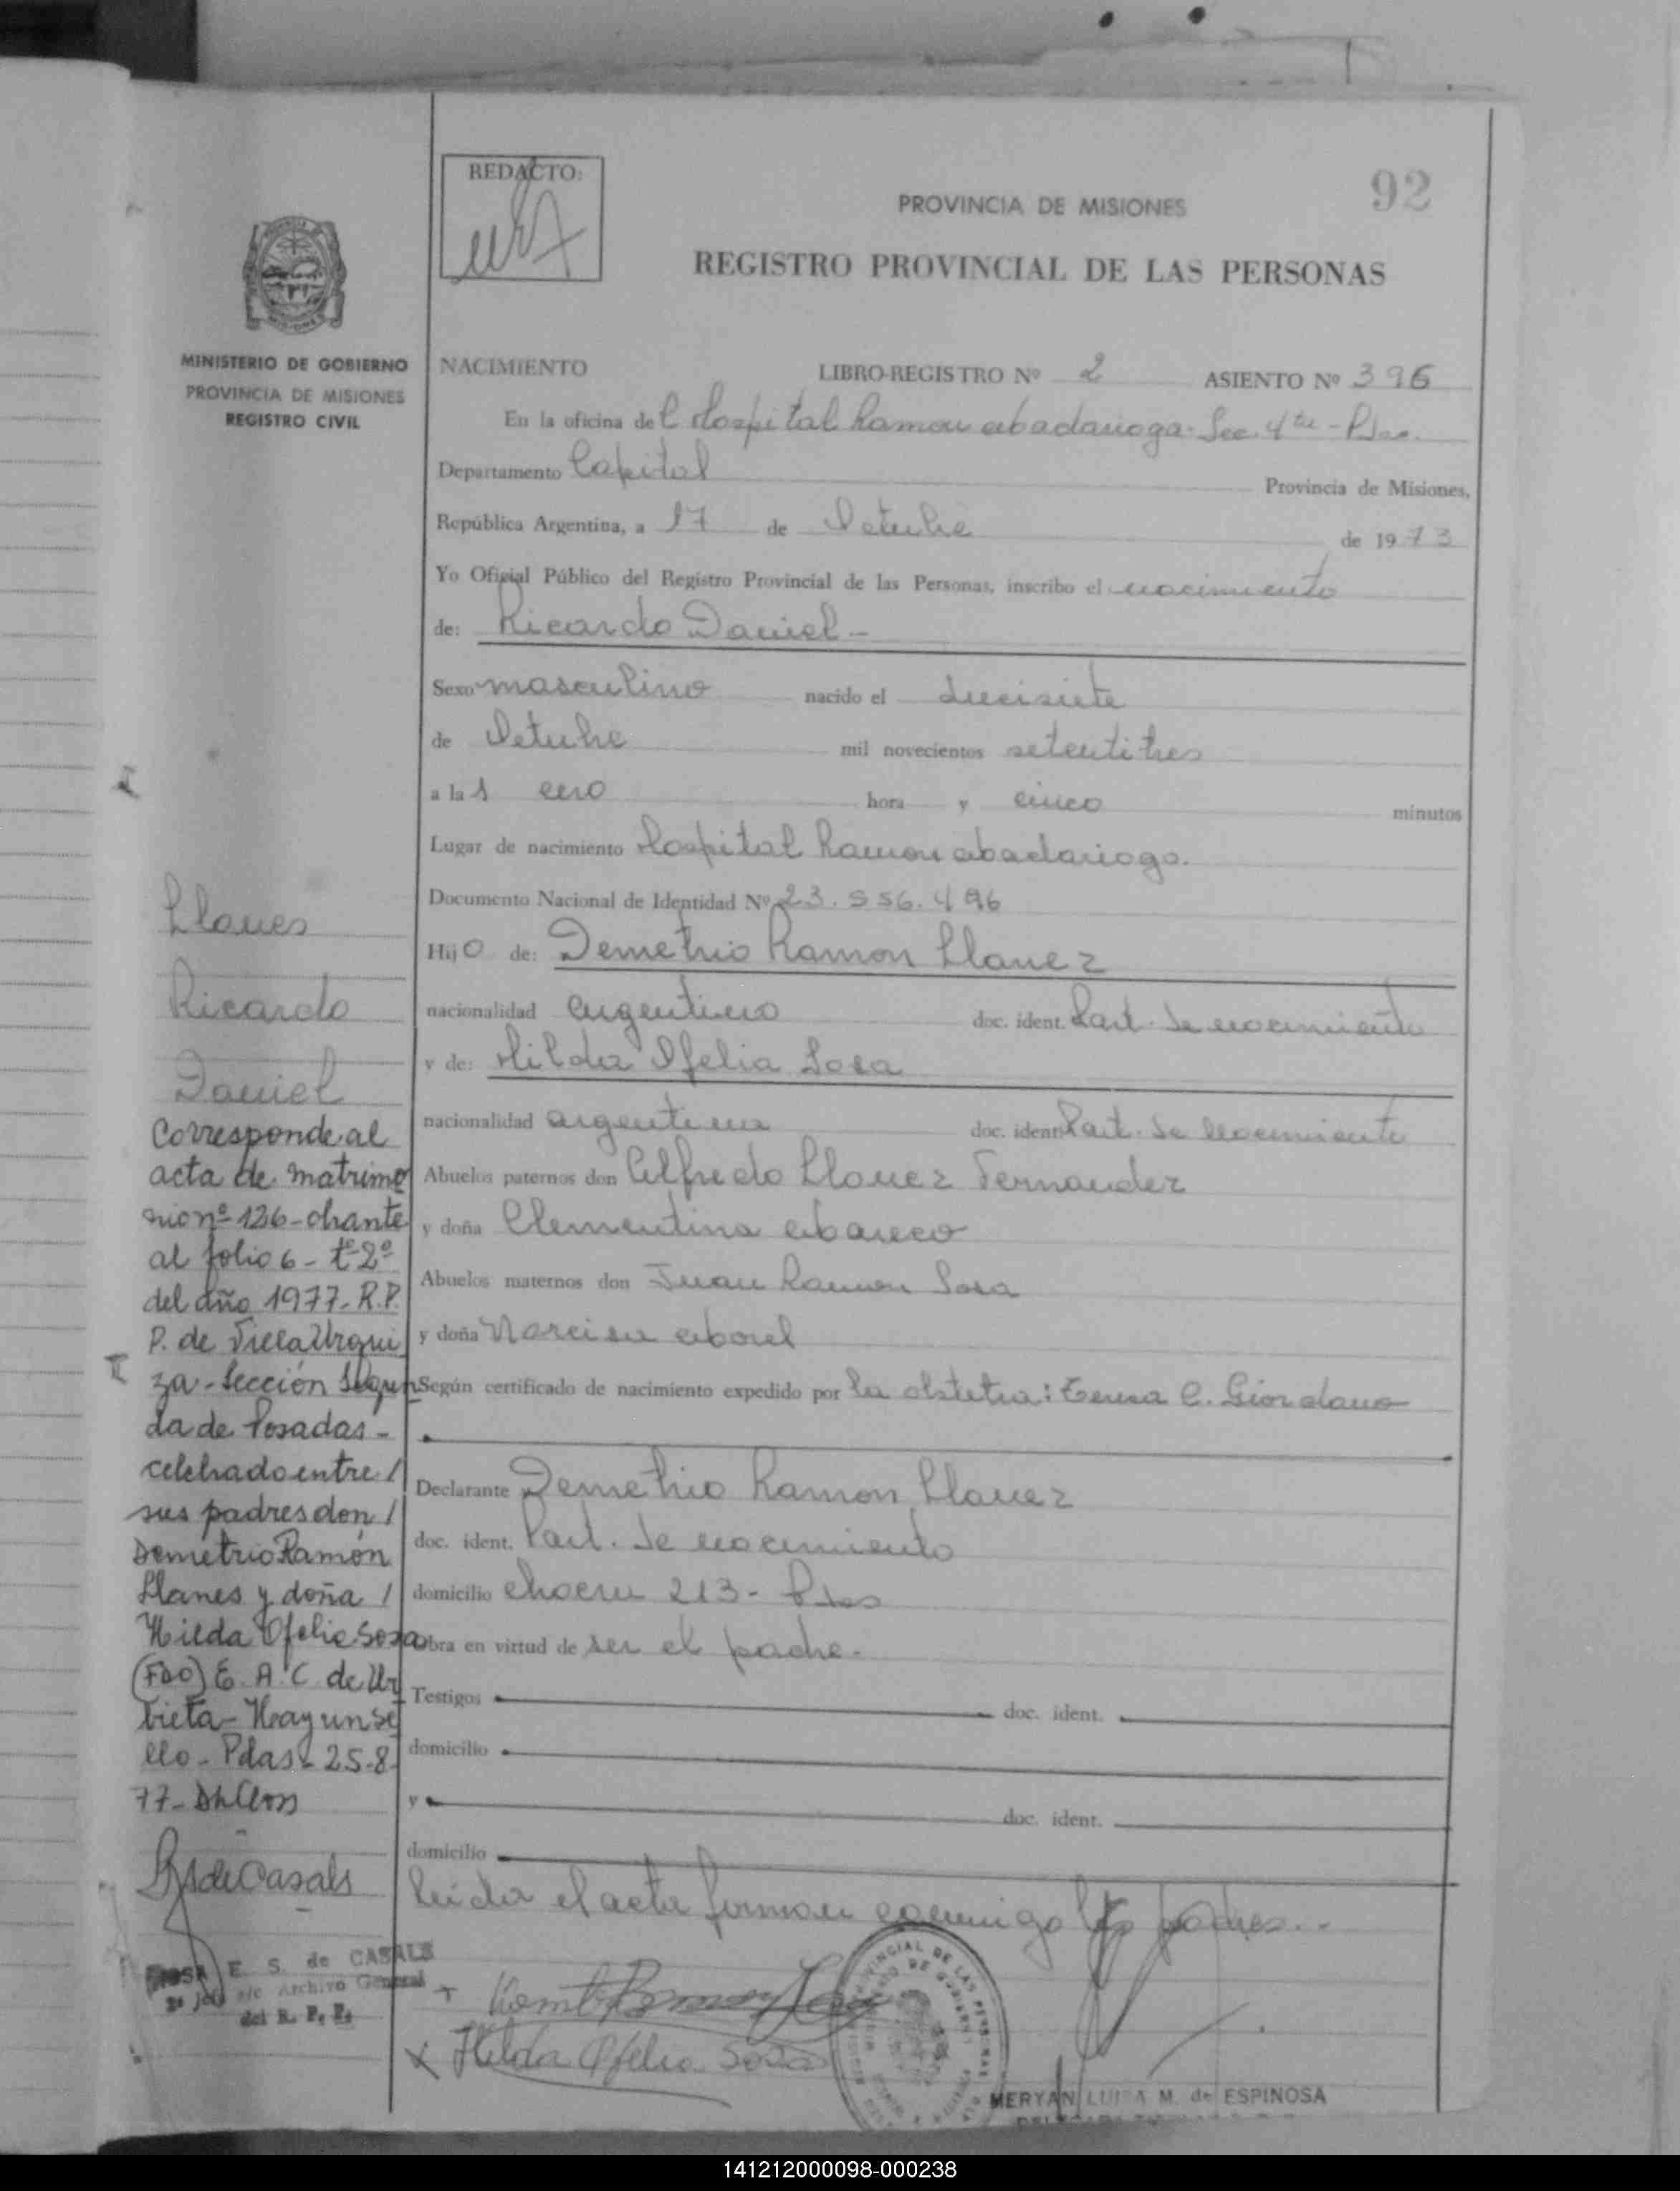 92
REDACTO:
PROVINCIA DE MISIONES
REGISTRO PROVINCIAL DE LAS PERSONAS
MINISTERIO DE GOBIERNO
PROVINCIA DE MISIONES
REGISTRO CIVIL
NACIMIENTO LIBRO-REGISTRO Nº 2 ASIENTO Nº 396
En la oficina del Hospital Ramon Abadarioga - Sec. 4ta - Pdas.
Departamento Capital Provincia de Misiones,
República Argentina, a 17 de Octubre de 1973
Yo Oficial Público del Registro Provincial de las Personas, inscribo el nacimiento
de: Ricardo Daniel -
Sexo masculino nacido el diecisiete
de Octubre mil novecientos setentitres
a las cero hora y cinco minutos
Lugar de nacimiento Hospital Ramon Abadarioga.
Documento Nacional de Identidad Nº 23.556.496
Hijo de: Demetrio Ramon Llanez
nacionalidad argentino doc. ident. Part. de nacimiento
y de: Hilda Ofelia Sosa
nacionalidad argentina doc. ident. Part. de nacimiento
Abuelos paternos don Alfredo Llanez Fernandez
y doña Clementina
Abuelos maternos don Juan Ramon Sosa
y doña Narcisa
Según certificado de nacimiento expedido por la obstetra: Teresa C. Giordano
Declarante Demetrio Ramon Llanez
doc. ident. Part. de nacimiento
domicilio chacra 213 - Pdas
obra en virtud de ser el padre.
Testigos doc. ident.
domicilio
y doc. ident.
domicilio
leida el acta firman conmigo los padres. -
Hilda Ofelia Sosa
MERYAN LUISA M. de ESPINOSA
Llanes
Ricardo
Daniel
Corresponde al
acta de matrimo
nio nº 126 - obrante
al folio 6 - tº 2º
del año 1977 - R.P.
P. de Villa Urqui
za - Sección Segun
da de Posadas -
celebrado entre /
sus padres don /
Demetrio Ramón
Llanes y doña /
Hilda Ofelia Sosa
(FDO) E. A. C. de Ur
bieta - Hay un se
llo - Pdas - 25-8-
77 -
de Casals
ROSA E. S. de CASALS
2º Jefe a/c Archivo General
del R. P. P.
141212000098-000238